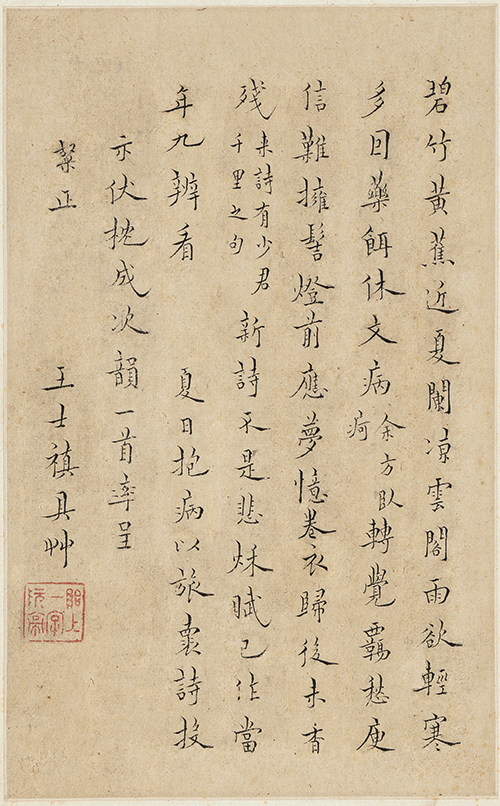 碧竹黃蕉近夏闌凉雲閣雨欲輕寒
多因藥餌休文病余方臥疴轉覺羈愁庾
信難擁髻燈前應夢憶卷衣歸後未香
殘來詩有少君千里之句新詩不是悲秋賦已作當
年九辨看 夏日抱病以旅囊詩投
示伏枕成次韻一首率呈
粲正 王士禛具艸
貽上一字阮亭